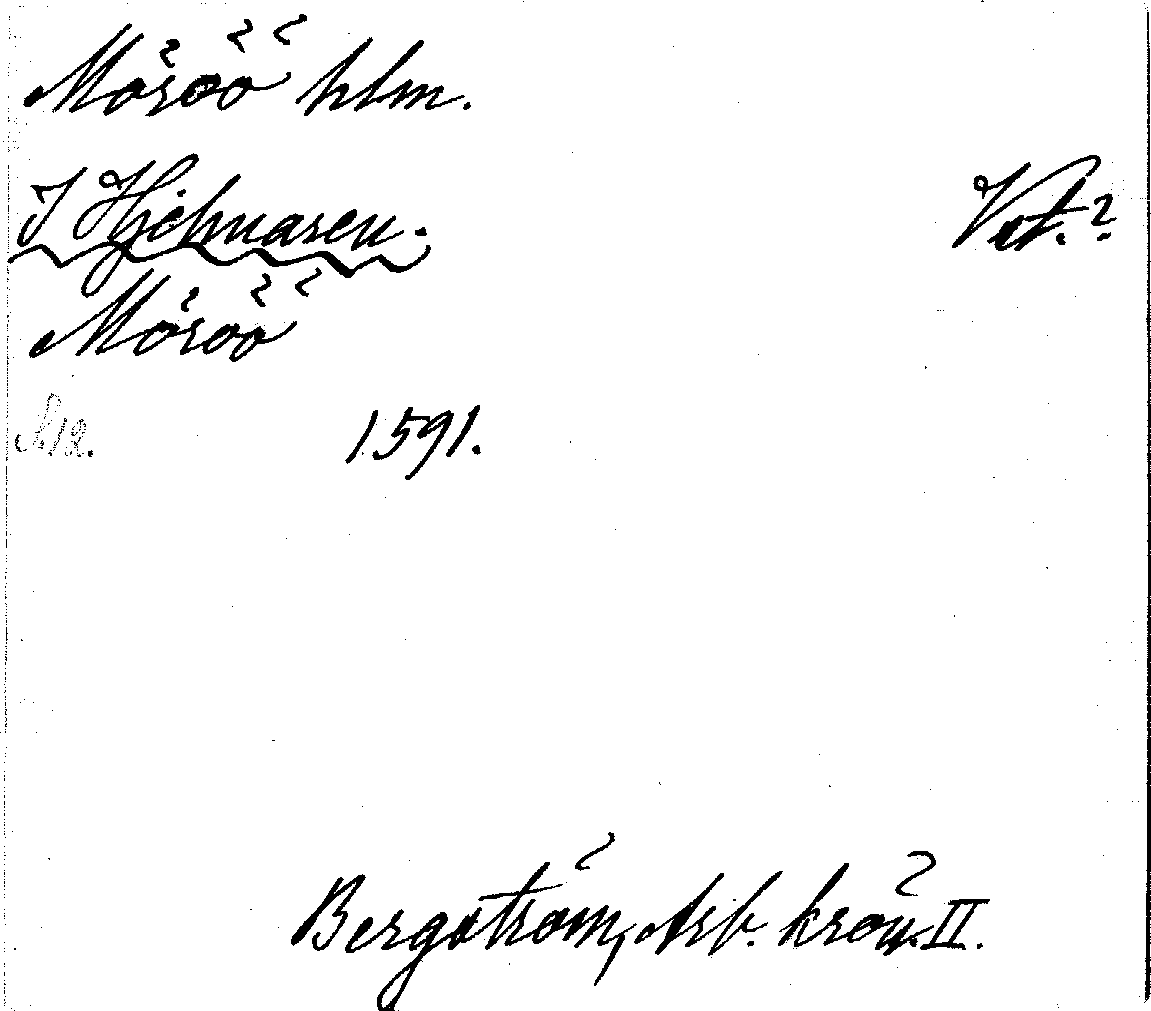 Möröö hlm.
I Hjelmaren.
Vst.?
Möröö
S. 12.
1591.
Bergström, Arb. krön. II.